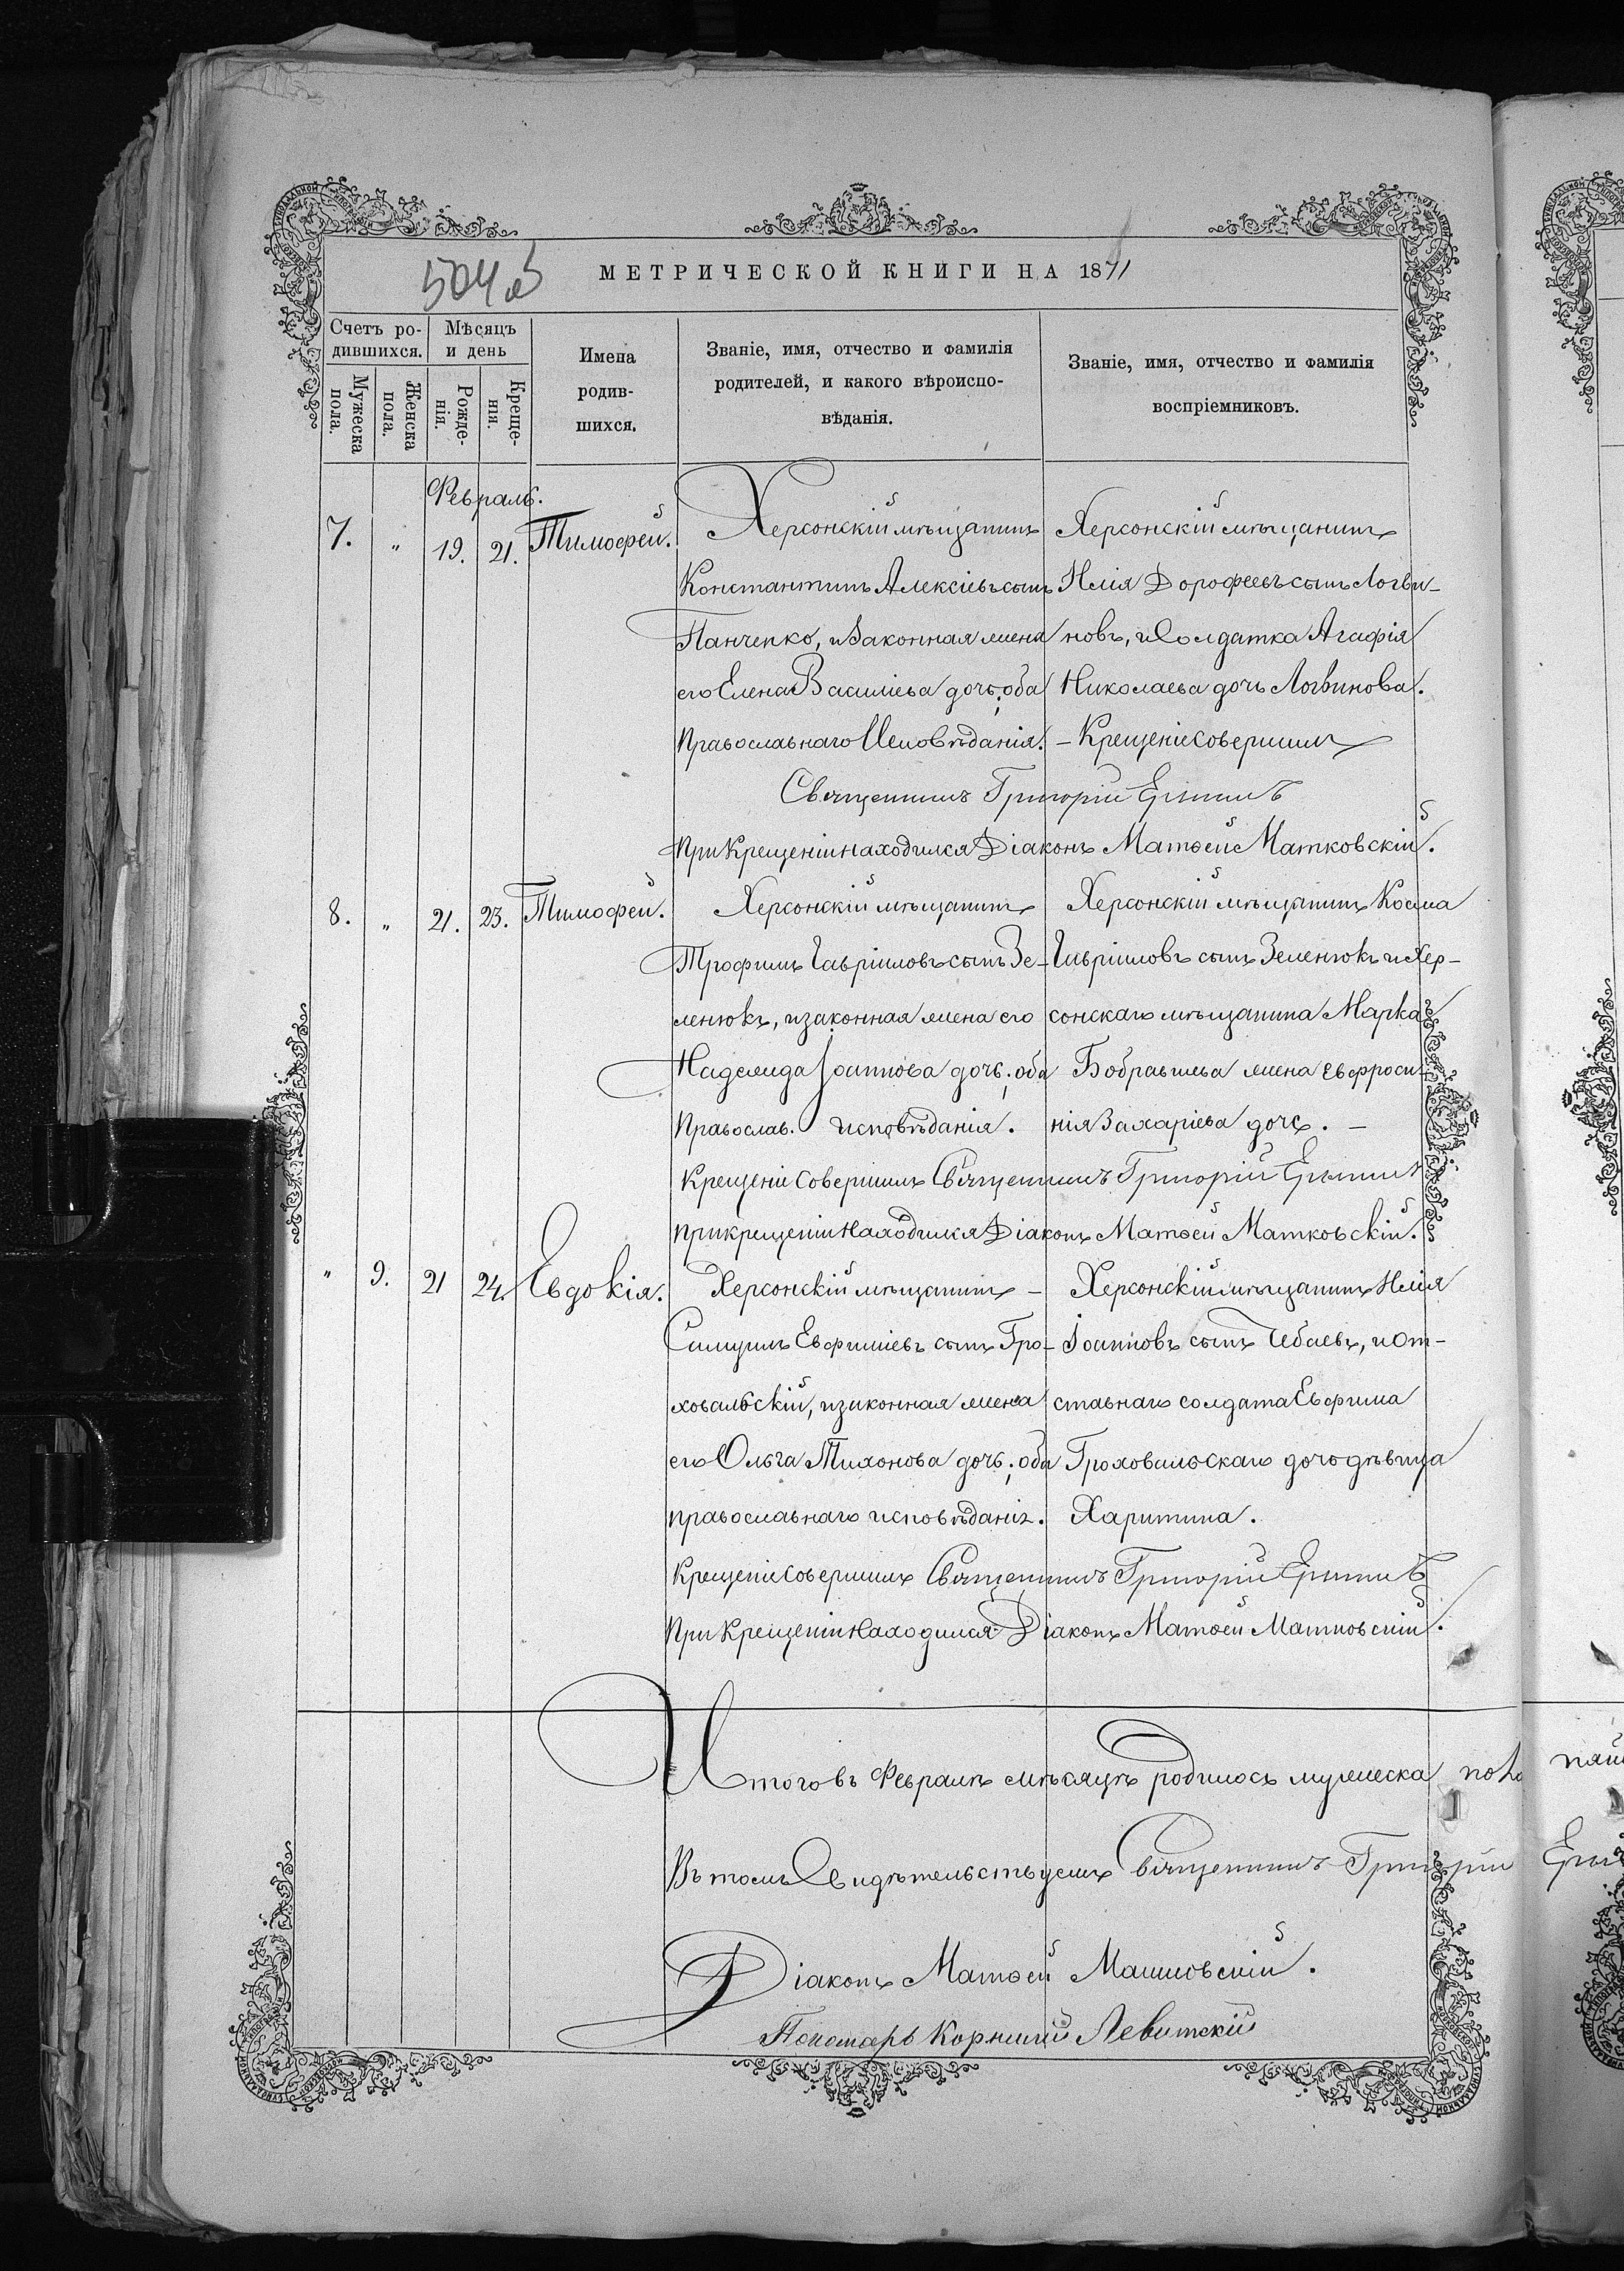 504 об
МЕТРИЧЕСКОЙ КНИГИ НА 1871
Счетъ ро-
дившихся.
Мѣсяцъ
и день
Имена
родив-
шихся.
Званіе, имя, отчество и фамилія
родителей, и какого вѣроиспо-
вѣданія.
Званіе, имя, отчество и фамилія
воспріемниковъ.
Мужеска
пола.
Женска
пола.
Рожде-
нія.
Креще-
нія.
Февраль.
7. „ 19. 21. Тимофей. Херсонскій мѣщанинъ Херсонскій мѣщанинъ
Константинъ Алексіевъ сынъ Илія Дорофеевъ сынъ Логви-
Панченко, и законная жена новъ, и Солдатка Агафія
его Елена Василіева дочь; оба Николаева дочь Логвинова.
Православнаго Исповѣданія. – Крещеніе совершилъ
Священникъ Григорій
При Крещеніи находился Діаконъ Матѳей Матковскій.
8. „ 21. 23. Тимофей. Херсонскій мѣщанинъ Херсонскій мѣщанинъ Косма
Трофимъ Гавріиловъ сынъ Зе- Гавріиловъ сынъ Зеленюкъ и Хер-
ленюкъ, и законная жена его сонскаго мѣщанина Марка
Надежда Іоаннова дочь; оба жена Евфроси-
Православ. исповѣданія. нія Захаріева дочь. –
Крещеніе совершилъ Священникъ Григорій
При крещеніи находился Діаконъ Матѳей Матковскій.
„ 9. 21 24. Евдокія. Херсонскій мѣщанинъ – Херсонскій мѣщанинъ Илія
Самуилъ Евфиміевъ сынъ Гро- Іоанновъ сынъ Чебаевъ, и От-
ховальскій, и законная жена ставнаго солдата Евфима
его Ольга Тихонова дочь; оба Гроховальскаго дочь дѣвица
православнаго исповѣданія. Харитина.
Крещеніе совершилъ Священникъ Григорій
При Крещеніи находился Діаконъ Матѳей Матковскій.
Итого въ Февралѣ мѣсяцѣ родилось мужеска
Въ томъ Свидѣтельствуемъ Священникъ Григорій
Діаконъ Матѳей Матковскій.
Пономарь Корнилій Левитскій